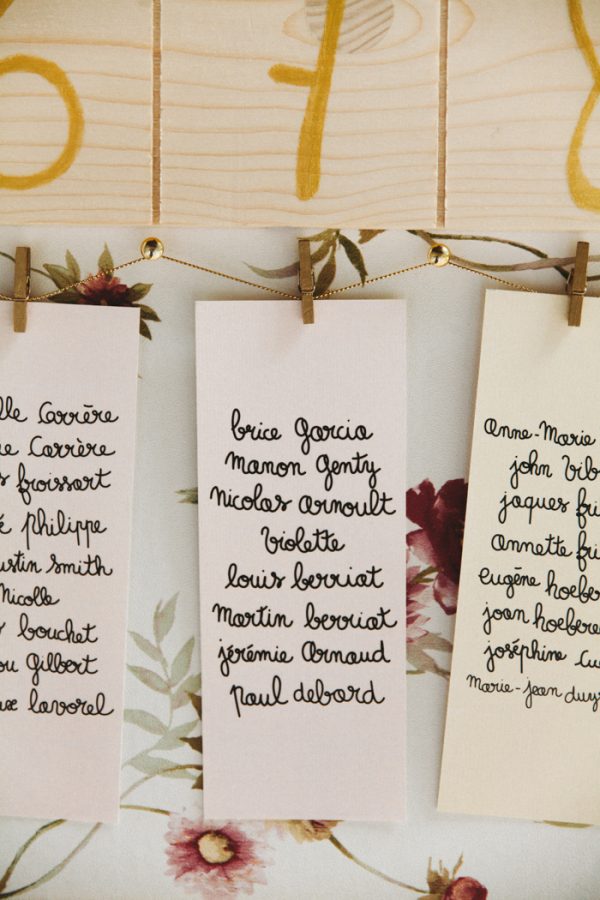 6 7 8
lle Carrère
ue Carrère
s froissart
é philippe
ustin smith
Nicolle
bouchet
ou Gilbert
lavorel
brice Garcia
Manon Genty
Nicolas Arnoult
Violette
louis berriat
Martin berriat
jérémie Arnaud
paul debord
Anne-Marie
john vib
jaques fri
Annette fri
eugène hoeber
joan hoebere
joséphine
Marie-jean duy